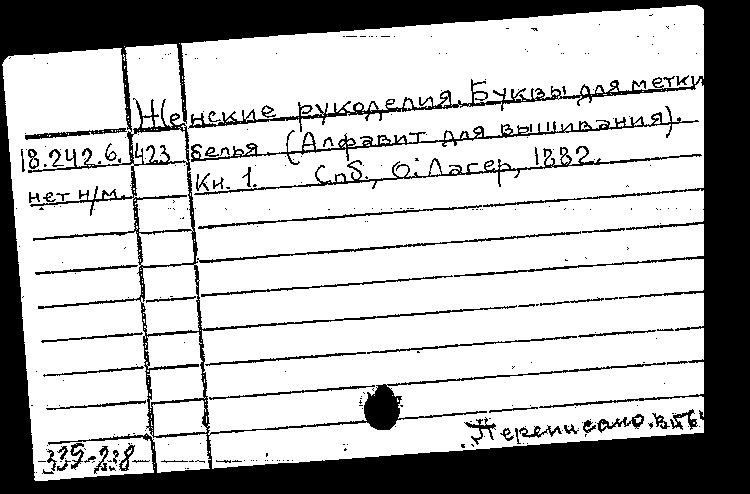 Женские рукоделия. Буквы для метки
18.242.6. 423 белья. (Алфавит для вышивания).
нет н/м. Кн. 1. Спб., О. Лагер, 1882.
Переписано.
339-238